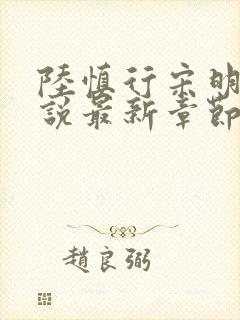 陸慎行宋明
說最新章節
趙良弼